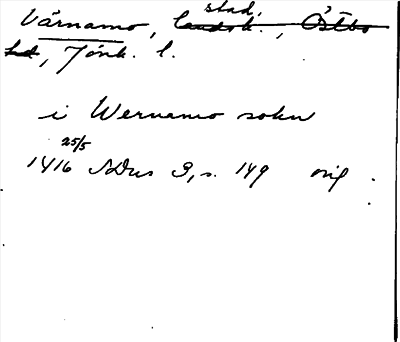 Värnamo, stad, landsk., Östbo
hd, Jönk. l.
i Wernemo sokn
25/5
1416 SDns 3, s. 149 orig.